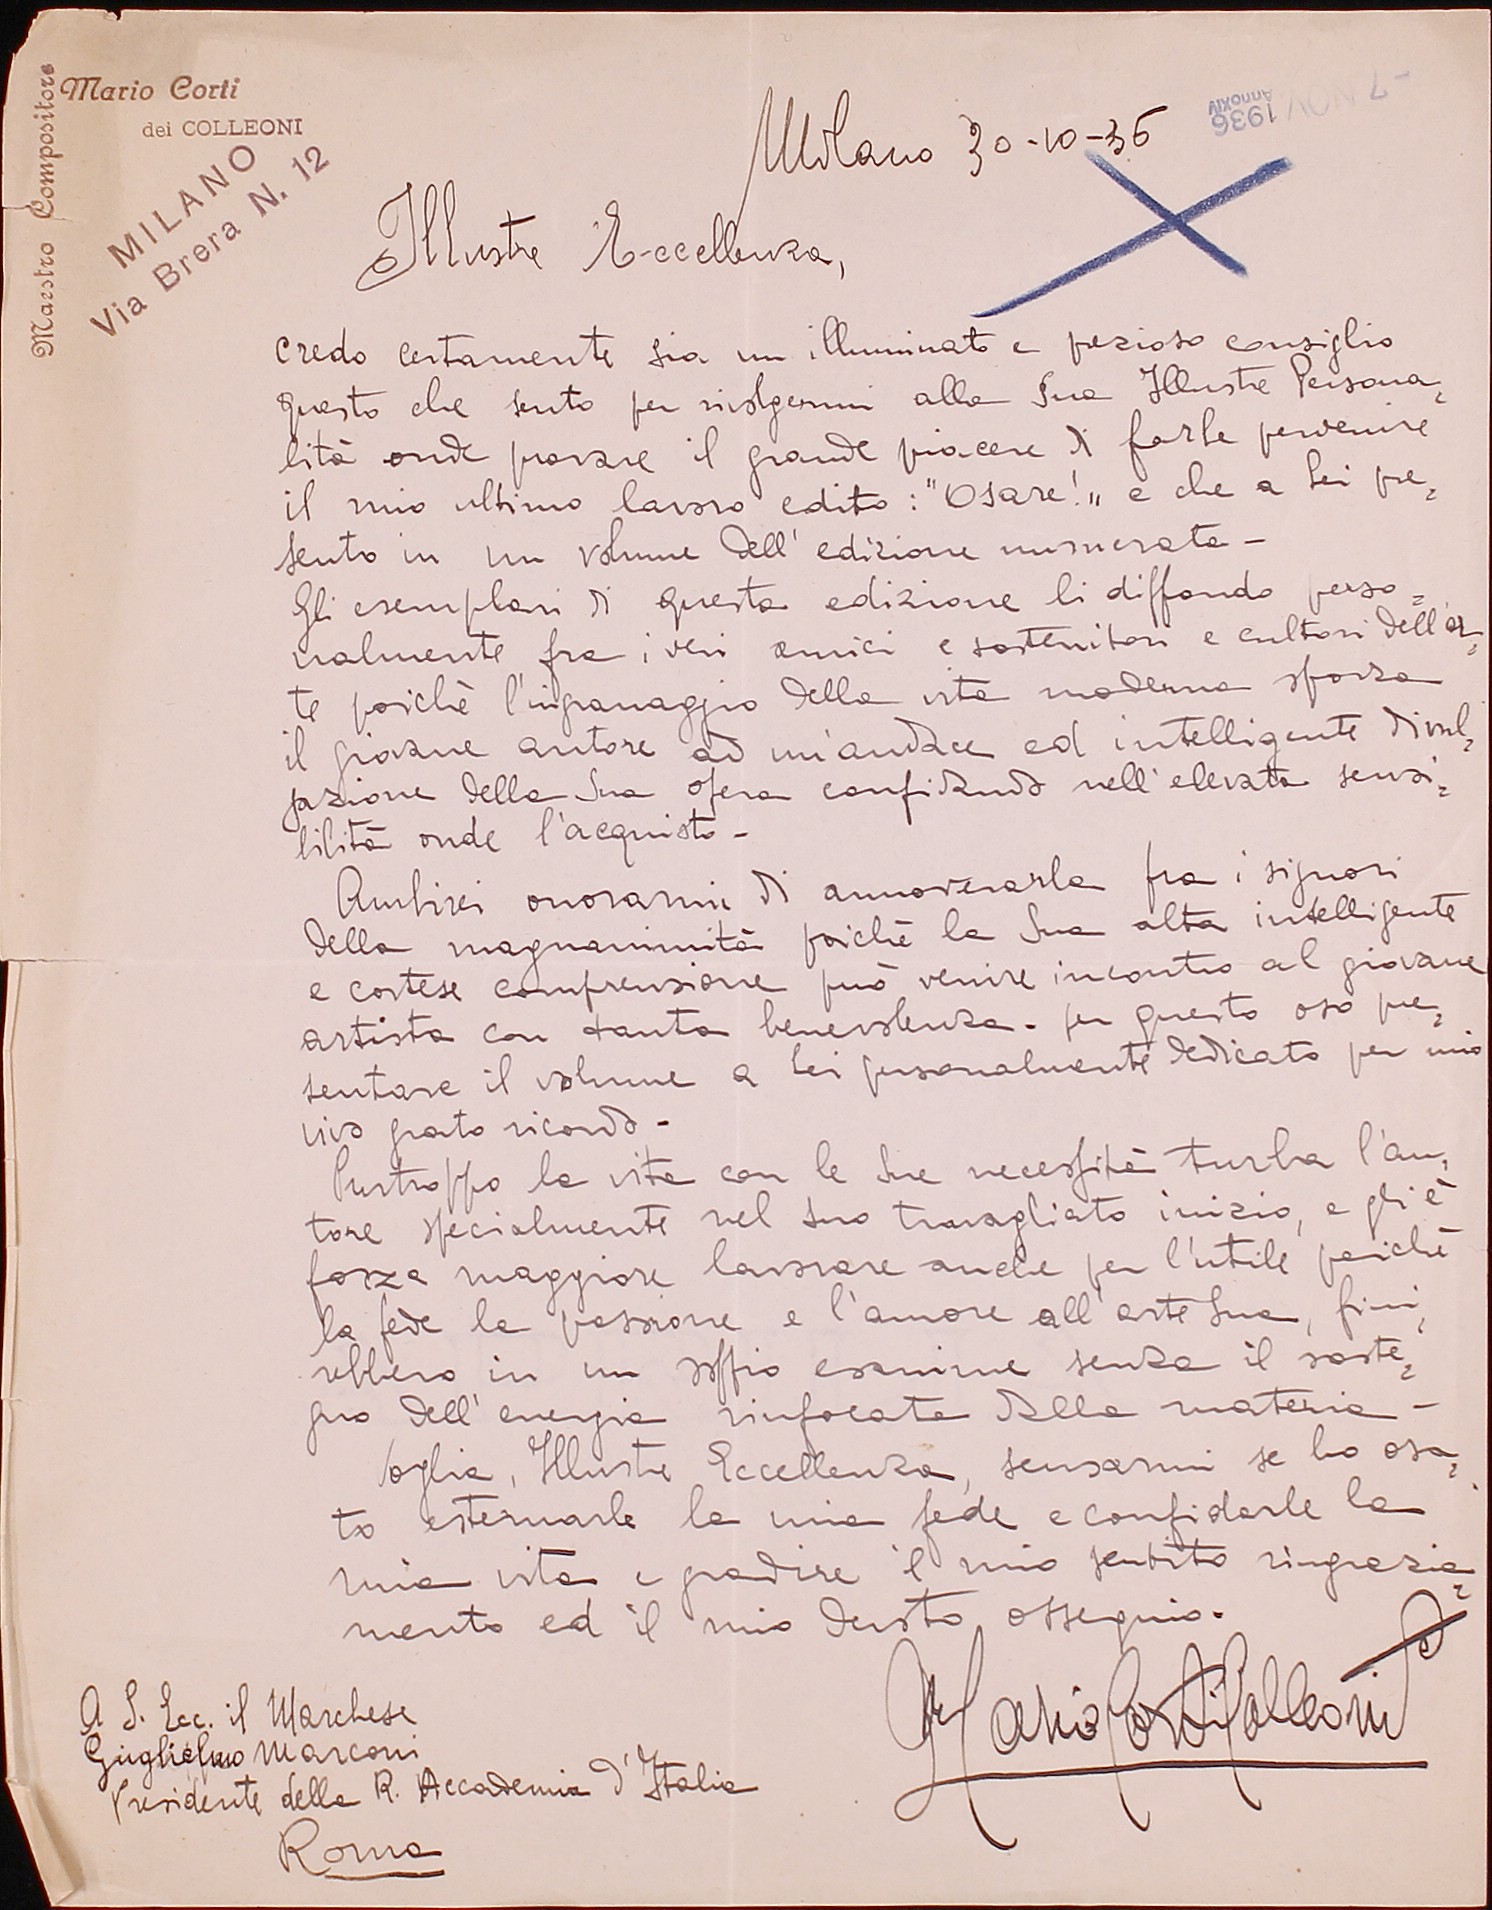 Mario Corti
dei COLLEONI
Maestro Compositore
MILANO
Via Brera N. 12
-7 NOV 1936
Anno XIV
Milano 30-10-36
Illustre Eccellenza,
credo certamente sia un illuminato e prezioso consiglio
questo che sento per rivolgermi alla Sua Illustre Persona=
lità onde provare il grande piacere di farle pervenire
il mio ultimo lavoro edito: "Osare!" e che a Lei pre=
sento in un volume dell'edizione numerata -
Gli esemplari di questa edizione li diffondo perso=
nalmente fra i veri amici e sostenitori e cultori dell'ar=
te poichè l'ingranaggio della vita moderna sforza
il giovane autore ad un'audace ed intelligente divul=
gazione della Sua opera confidando nell'elevata sensi=
bilità onde l'acquisto -
Ambirei onorarmi di annoverarla fra i signori
della magnanimità poichè la Sua alta intelligente
e cortese comprensione può venire incontro al giovane
artista con tanta benevolenza - per questo oso pre=
sentare il volume a Lei personalmente dedicato per mio
vivo grato ricordo -
Purtroppo la vita con le Sue necessità turba l'au=
tore specialmente nel suo travagliato inizio, e gli è
forza maggiore lavorare anche per l'utile poichè
la fede la passione e l'amore all'arte Sua, fini=
rebbero in un soffio esanime senza il soste=
gno dell'energia rinfocata dalla materia -
Voglia, Illustre Eccellenza, scusarmi se ho osa=
to esternarle la mia fede e confidarle la
mia vita e gradire il mio sentito ringrazia=
mento ed il mio devoto ossequio.
Mario Corti Colleoni
A S. Ecc. il Marchese
Guglielmo Marconi
Presidente della R. Accademia d'Italia
Roma